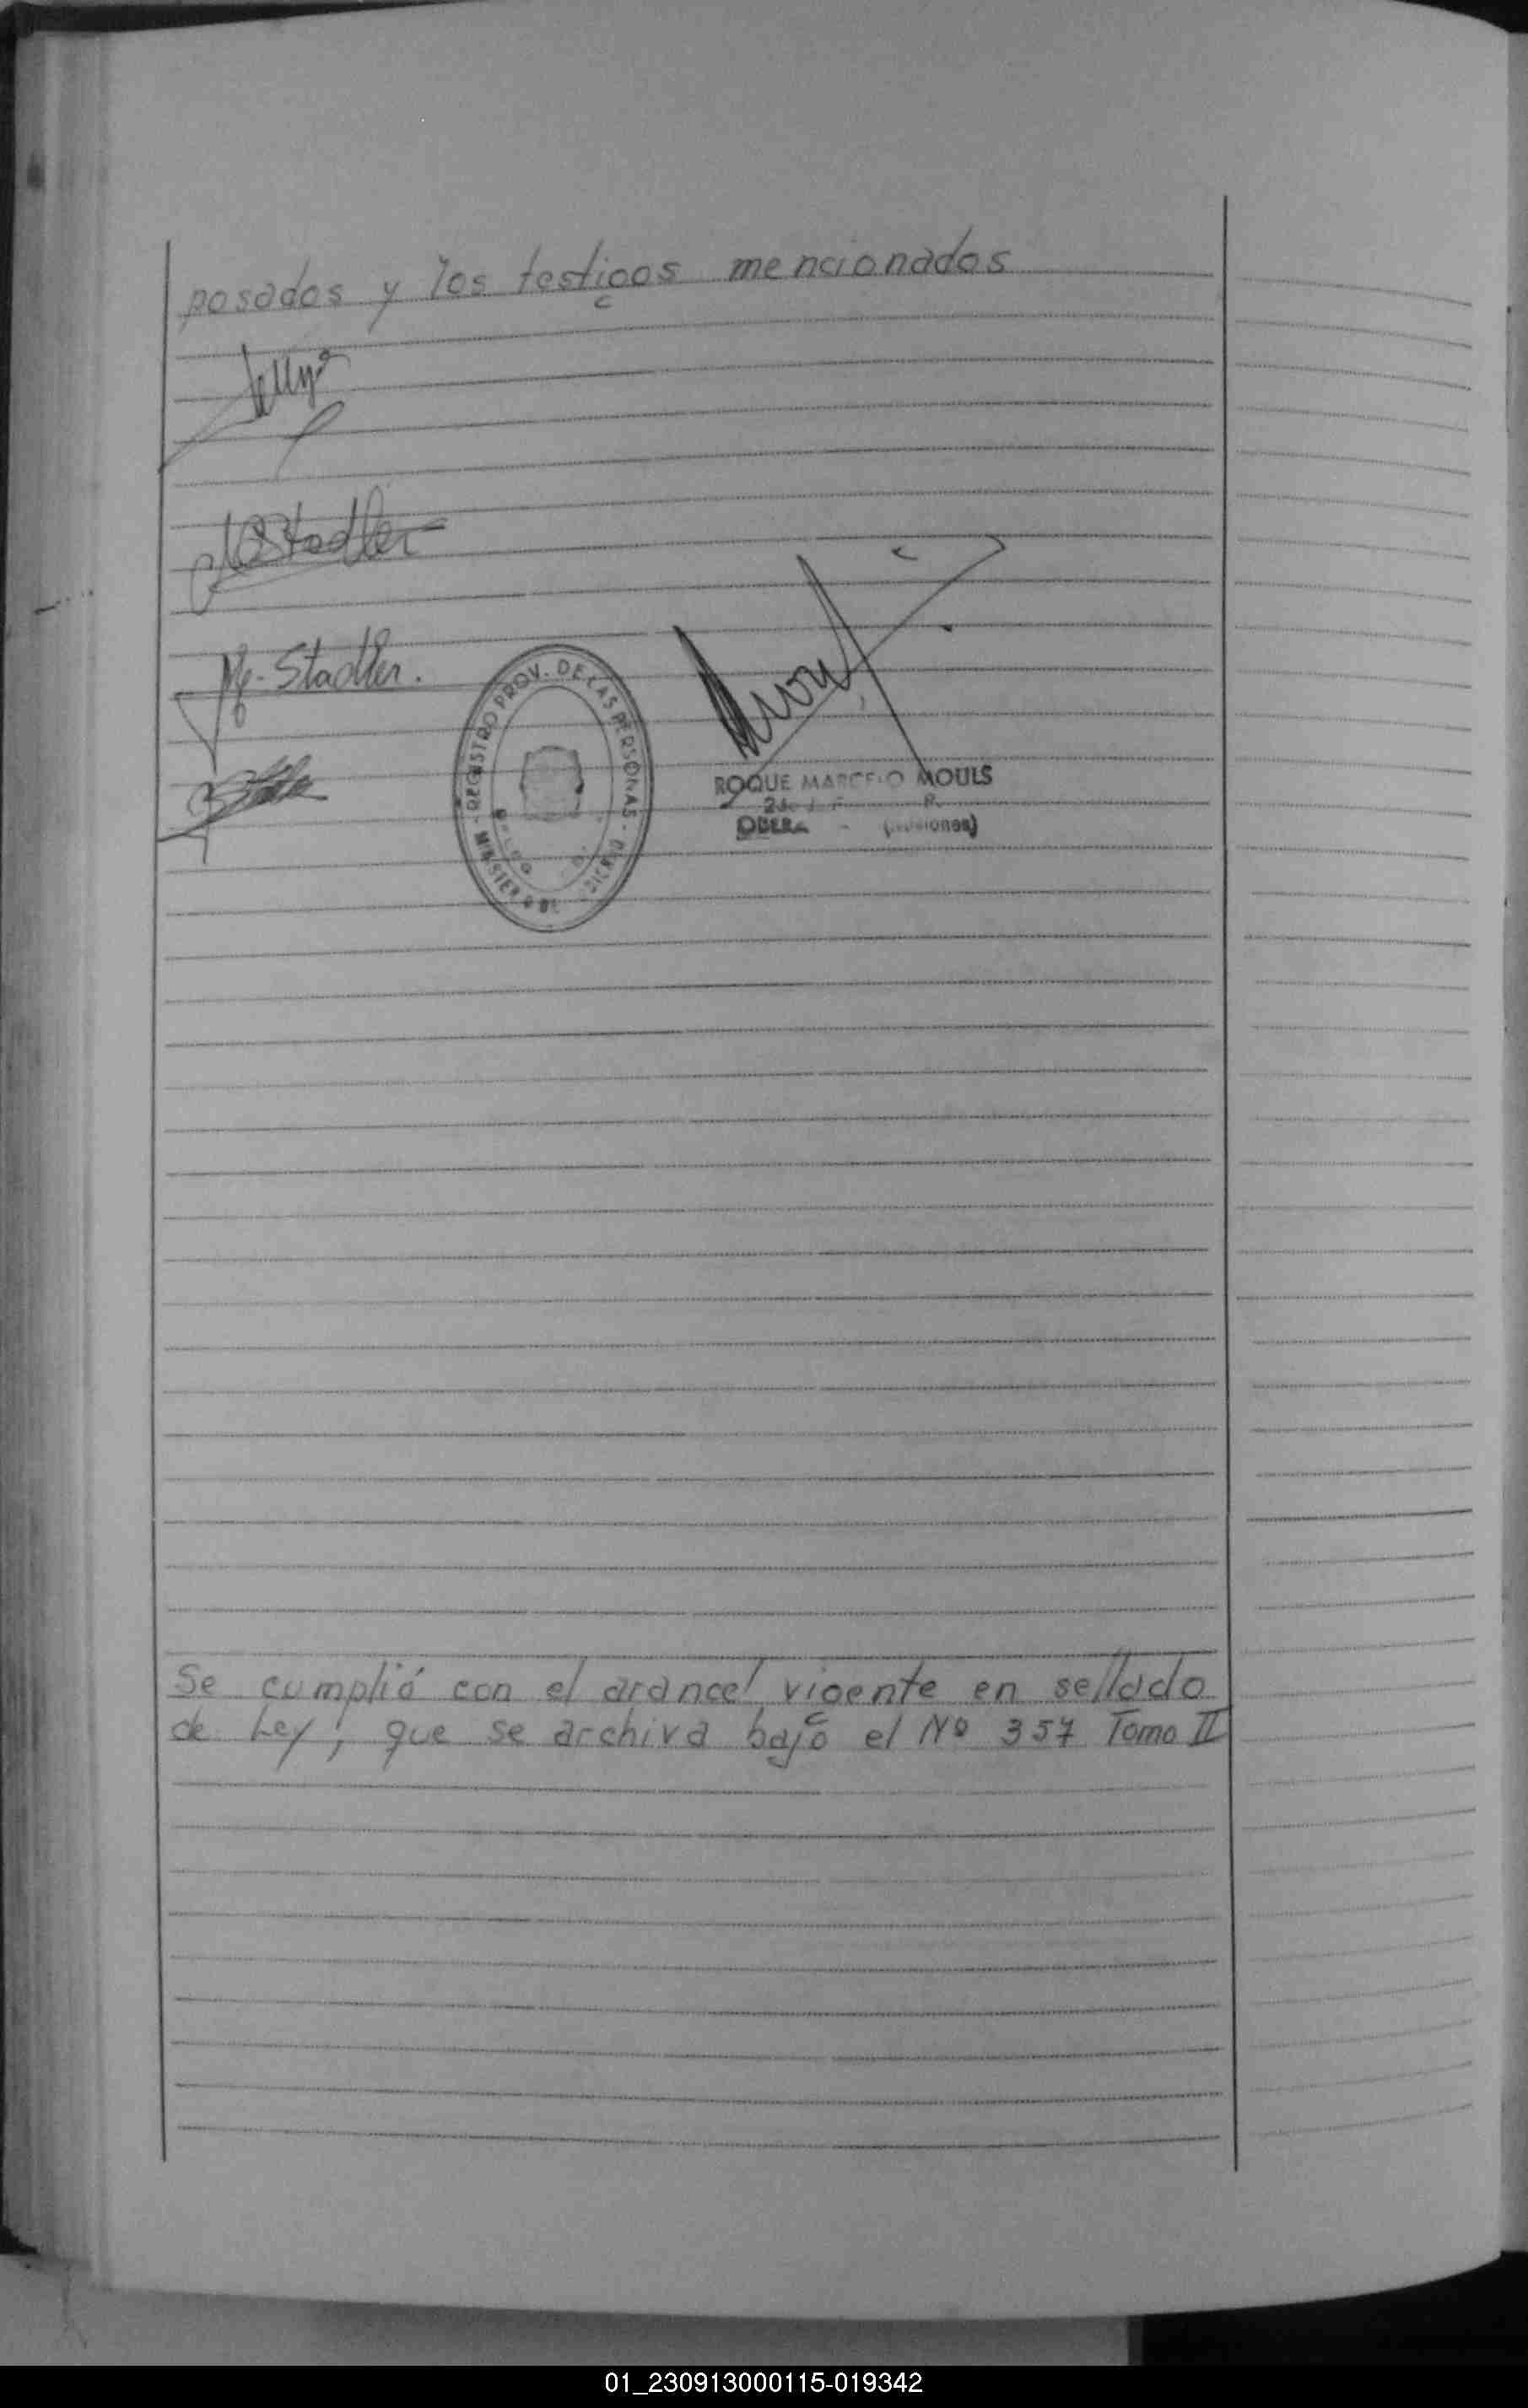 posados y los testigos mencionados
Stadler
Stadler.
REGISTRO PROV. DE LAS PERSONAS
ROQUE MARCELO MOULS
OBERA - (Misiones)
Se cumplió con el arancel vigente en sellado
de Ley; que se archiva bajo el Nº 357 Tomo II
01_230913000115-019342